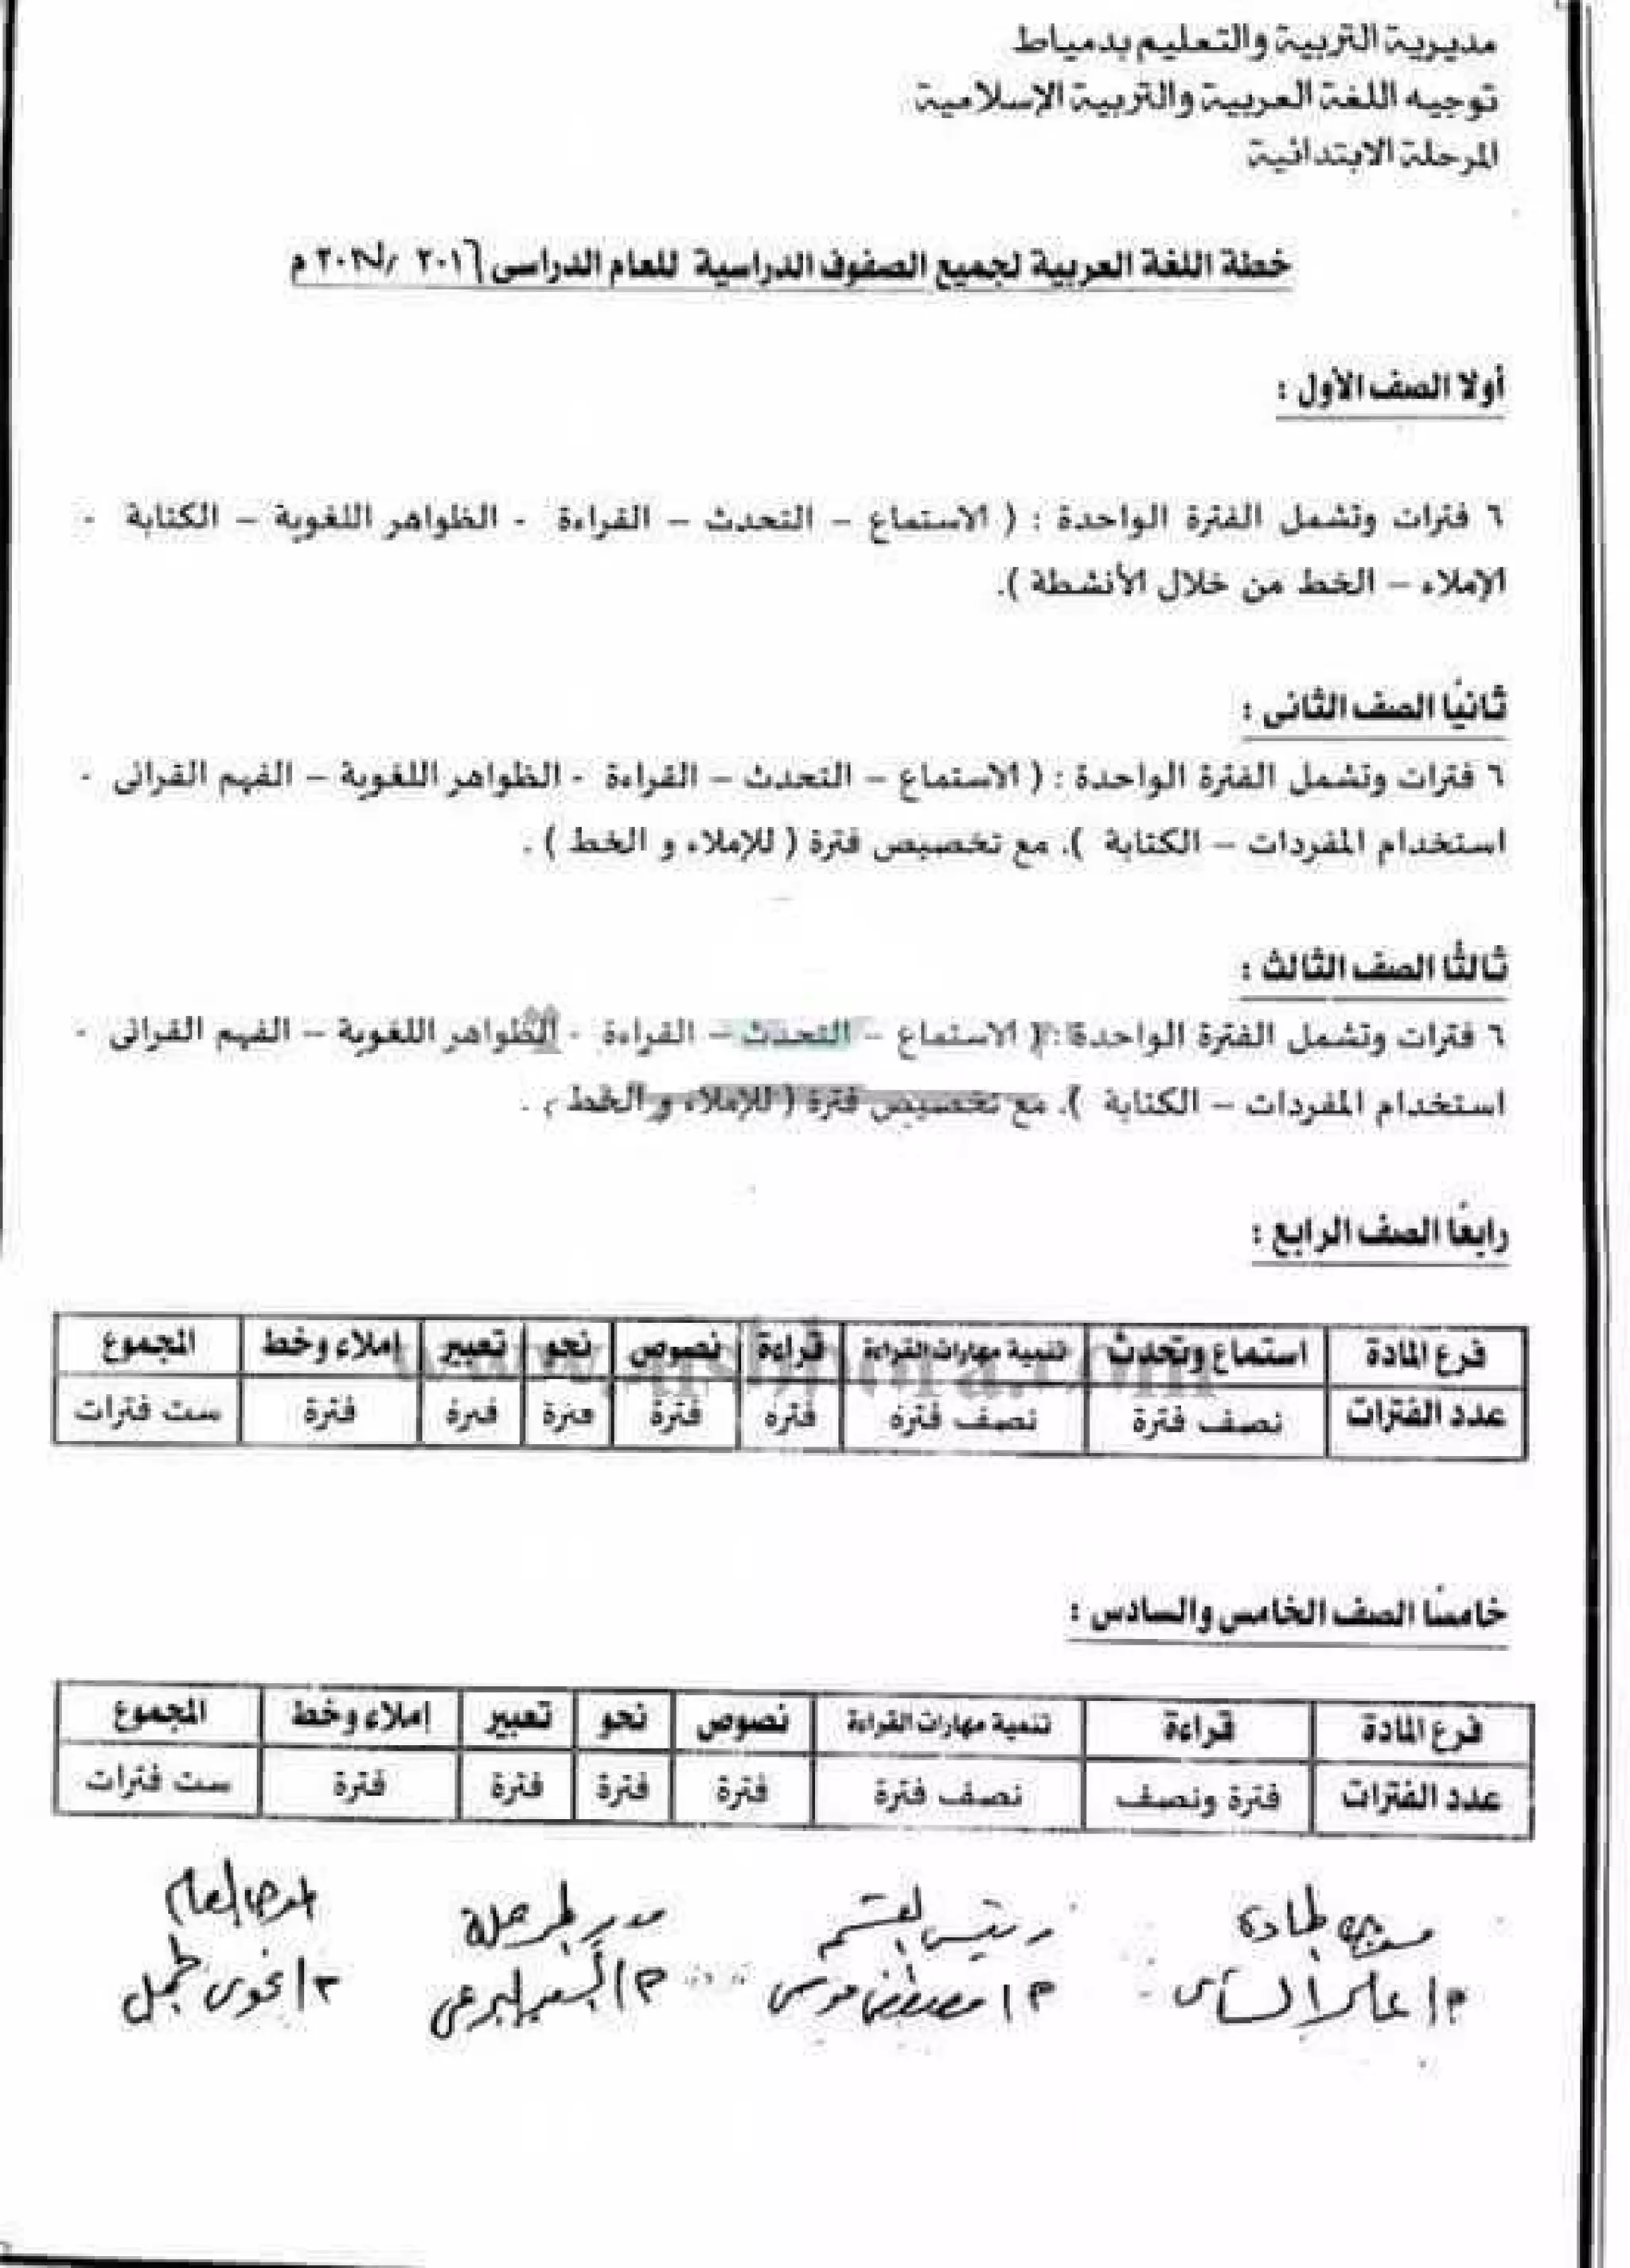 مديرية التربية والتعليم بدمياط
توجيه اللغة العربية والتربية الإسلامية
المرحلة الابتدائية
خطة اللغة العربية لجميع الصفوف الدراسية للعام الدراسى ٢٠١٦ / ٢٠١٧ م
أولا الصف الأول :
٦ فترات وتشمل الفترة الواحدة : ( الاستماع – التحدث – القراءة - الظواهر اللغوية – الكتابة -
الإملاء – الخط من خلال الأنشطة ).
ثانيًا الصف الثانى :
٦ فترات وتشمل الفترة الواحدة : ( الاستماع – التحدث – القراءة - الظواهر اللغوية – الفهم القرائى -
استخدام المفردات – الكتابة ). مع تخصيص فترة ( للإملاء و الخط ) .
ثالثًا الصف الثالث :
٦ فترات وتشمل الفترة الواحدة : ( الاستماع – التحدث – القراءة - الظواهر اللغوية – الفهم القرائى -
استخدام المفردات – الكتابة ). مع تخصيص فترة ( للإملاء و الخط ) .
رابعًا الصف الرابع :
فرع المادة استماع وتحدث تنمية مهارات القراءة قراءة نصوص نحو تعبير إملاء وخط المجموع
عدد الفترات نصف فترة نصف فترة فترة فترة فترة فترة فترة ست فترات
خامسًا الصف الخامس والسادس :
فرع المادة قراءة تنمية مهارات القراءة نصوص نحو تعبير إملاء وخط المجموع
عدد الفترات فترة ونصف نصف فترة فترة فترة فترة فترة ست فترات
موجه المادة رئيس القسم مدير المرحلة الموجه العام
م / مصطفى موسى م /